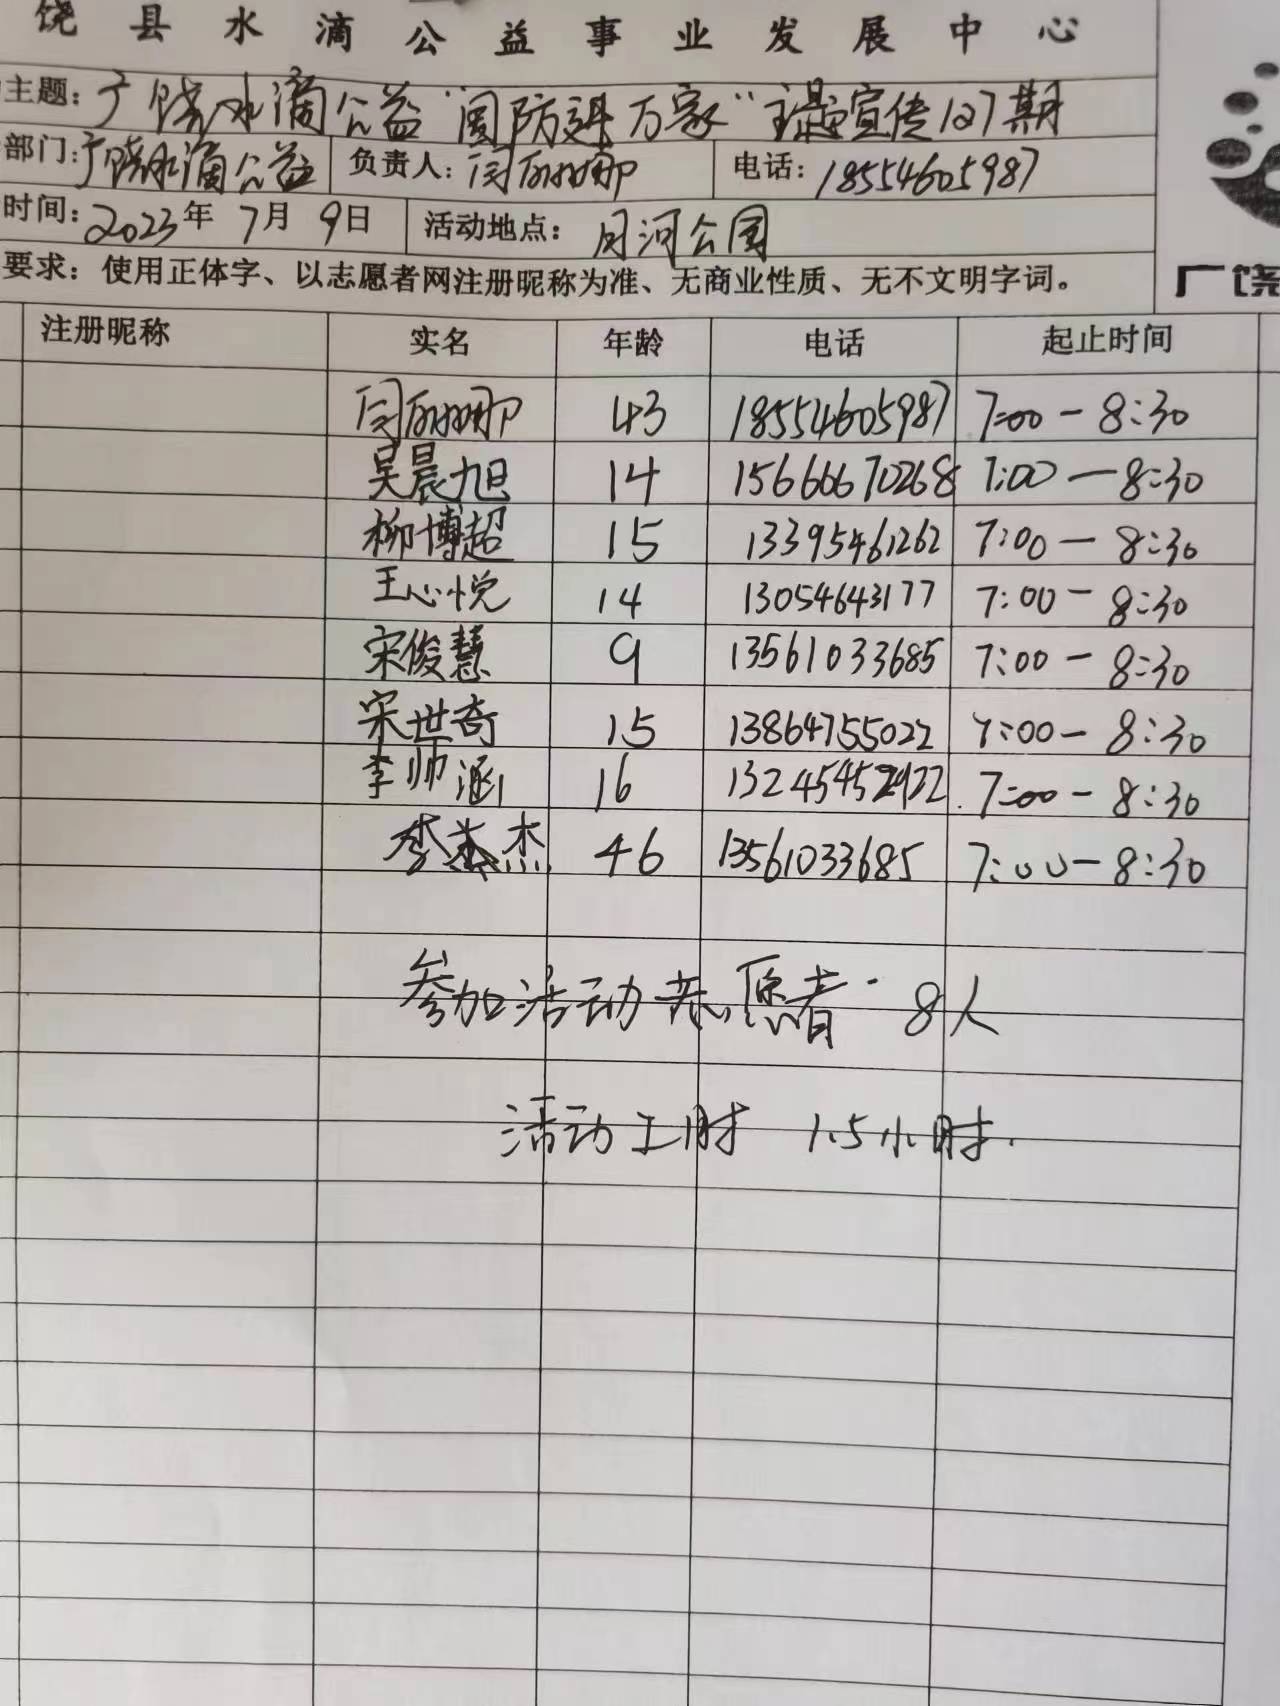 饶县水滴公益事业发展中心
主题：广饶水滴公益“国防进万家”主题宣传127期
部门：广饶水滴公益 负责人：闫丽娜 电话：18554605987
时间：2023年7月9日 活动地点：月河公园
要求：使用正体字、以志愿者网注册昵称为准、无商业性质、无不文明字词。
广饶
注册昵称 实名 年龄 电话 起止时间
闫丽娜 43 18554605987 7:00-8:30
吴晨旭 14 15666670268 7:00-8:30
柳博超 15 13395461262 7:00-8:30
王心悦 14 13054643177 7:00-8:30
宋俊慧 9 13561033685 7:00-8:30
宋世奇 15 13864755022 7:00-8:30
李帅涵 16 7:00-8:30
李 杰 46 13561033685 7:00-8:30
参加活动志愿者 8人
活动工时 1.5小时.